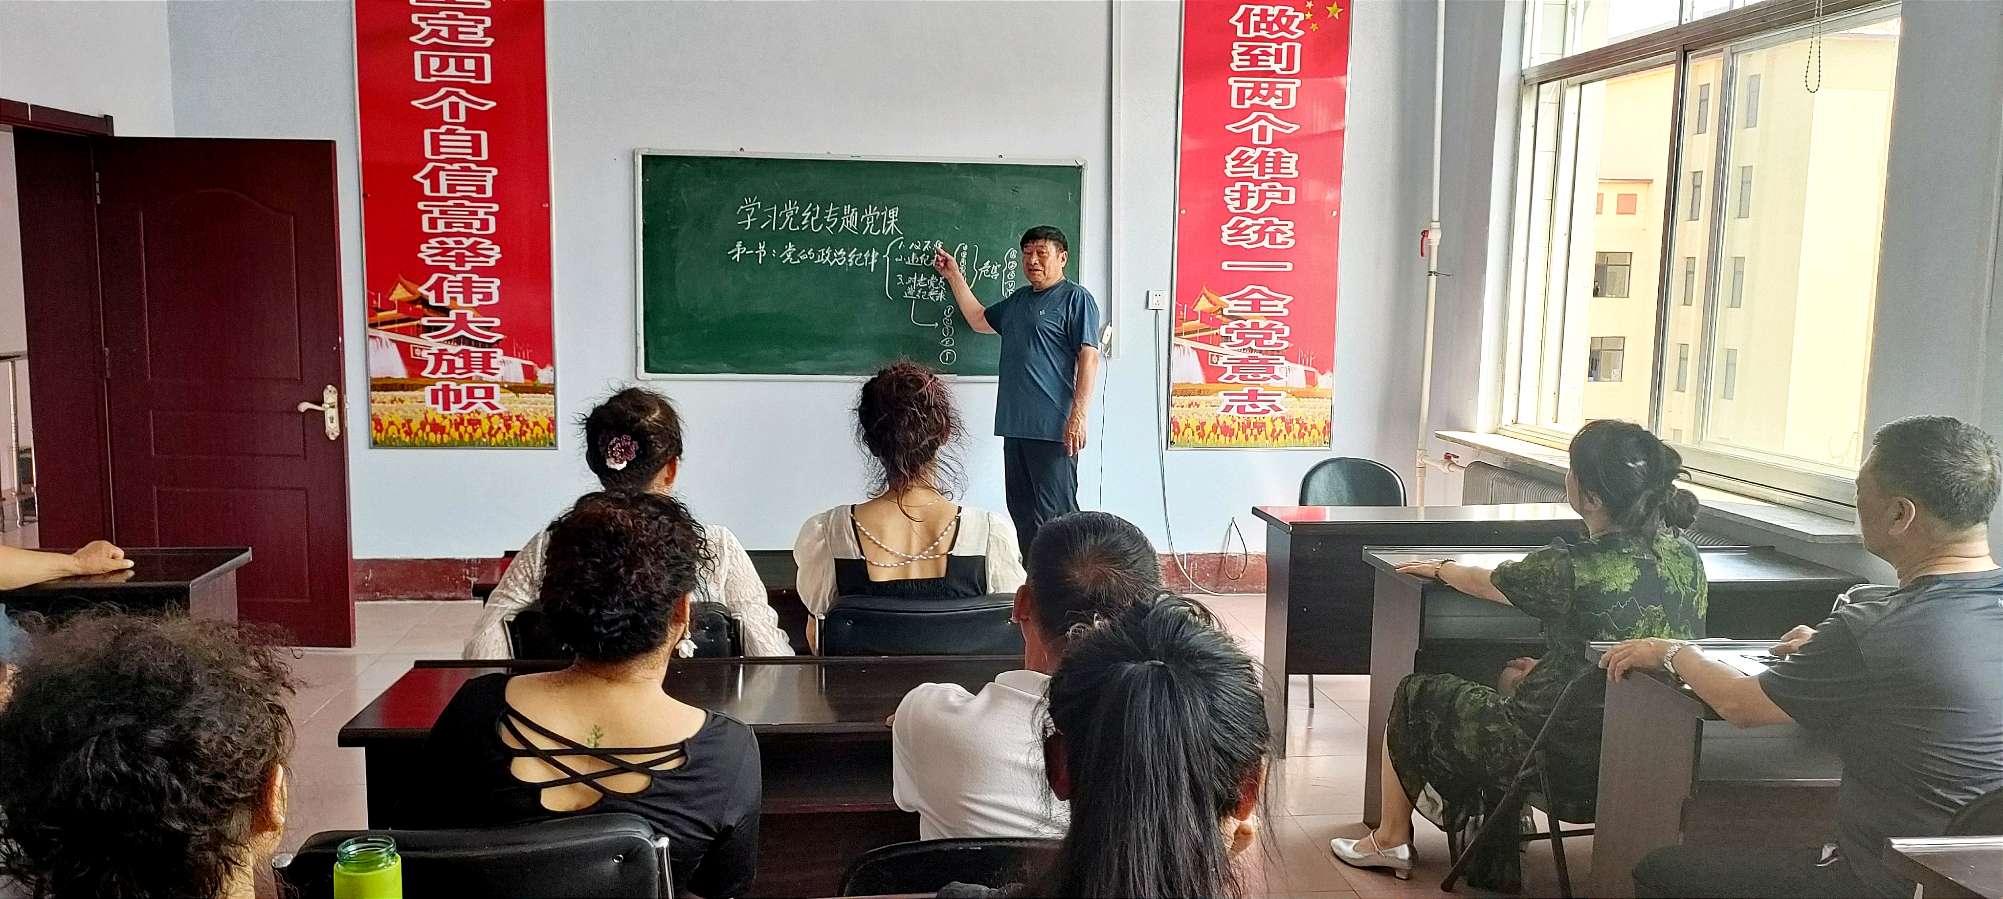 定四个自信高举伟大旗帜
做到两个维护统一全党意志
学习党纪专题党课
第一节:党的政治纪律
3.对老党员
违纪要求
危害